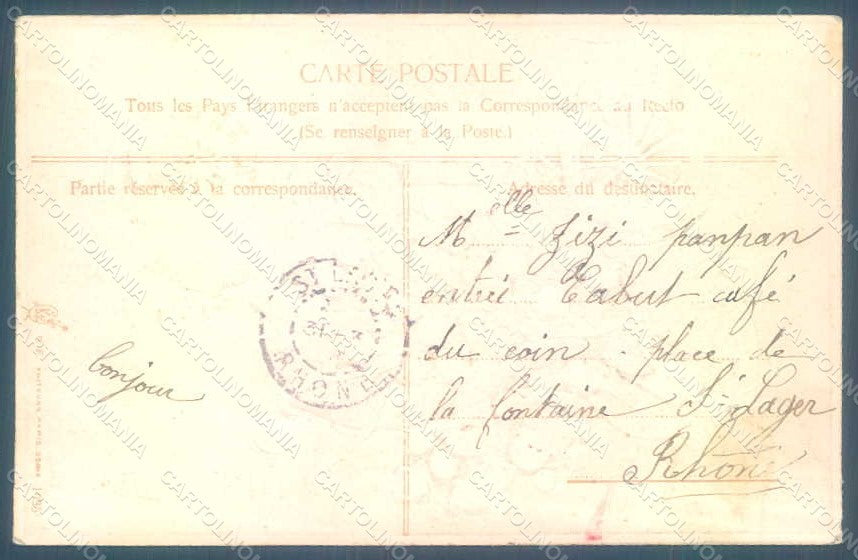 CARTE POSTALE
Tous les Pays étrangers n'acceptent pas la Correspondance au Recto
(Se renseigner à la Poste.)
Partie réservée à la correspondance.
Adresse du destinataire.
Melle Zizi panpan
entrée Tabut café
du coin - place de
la fontaine St Lager
Rhône
bonjour
ST LAGER
RHONE
CARTOLINOMANIA